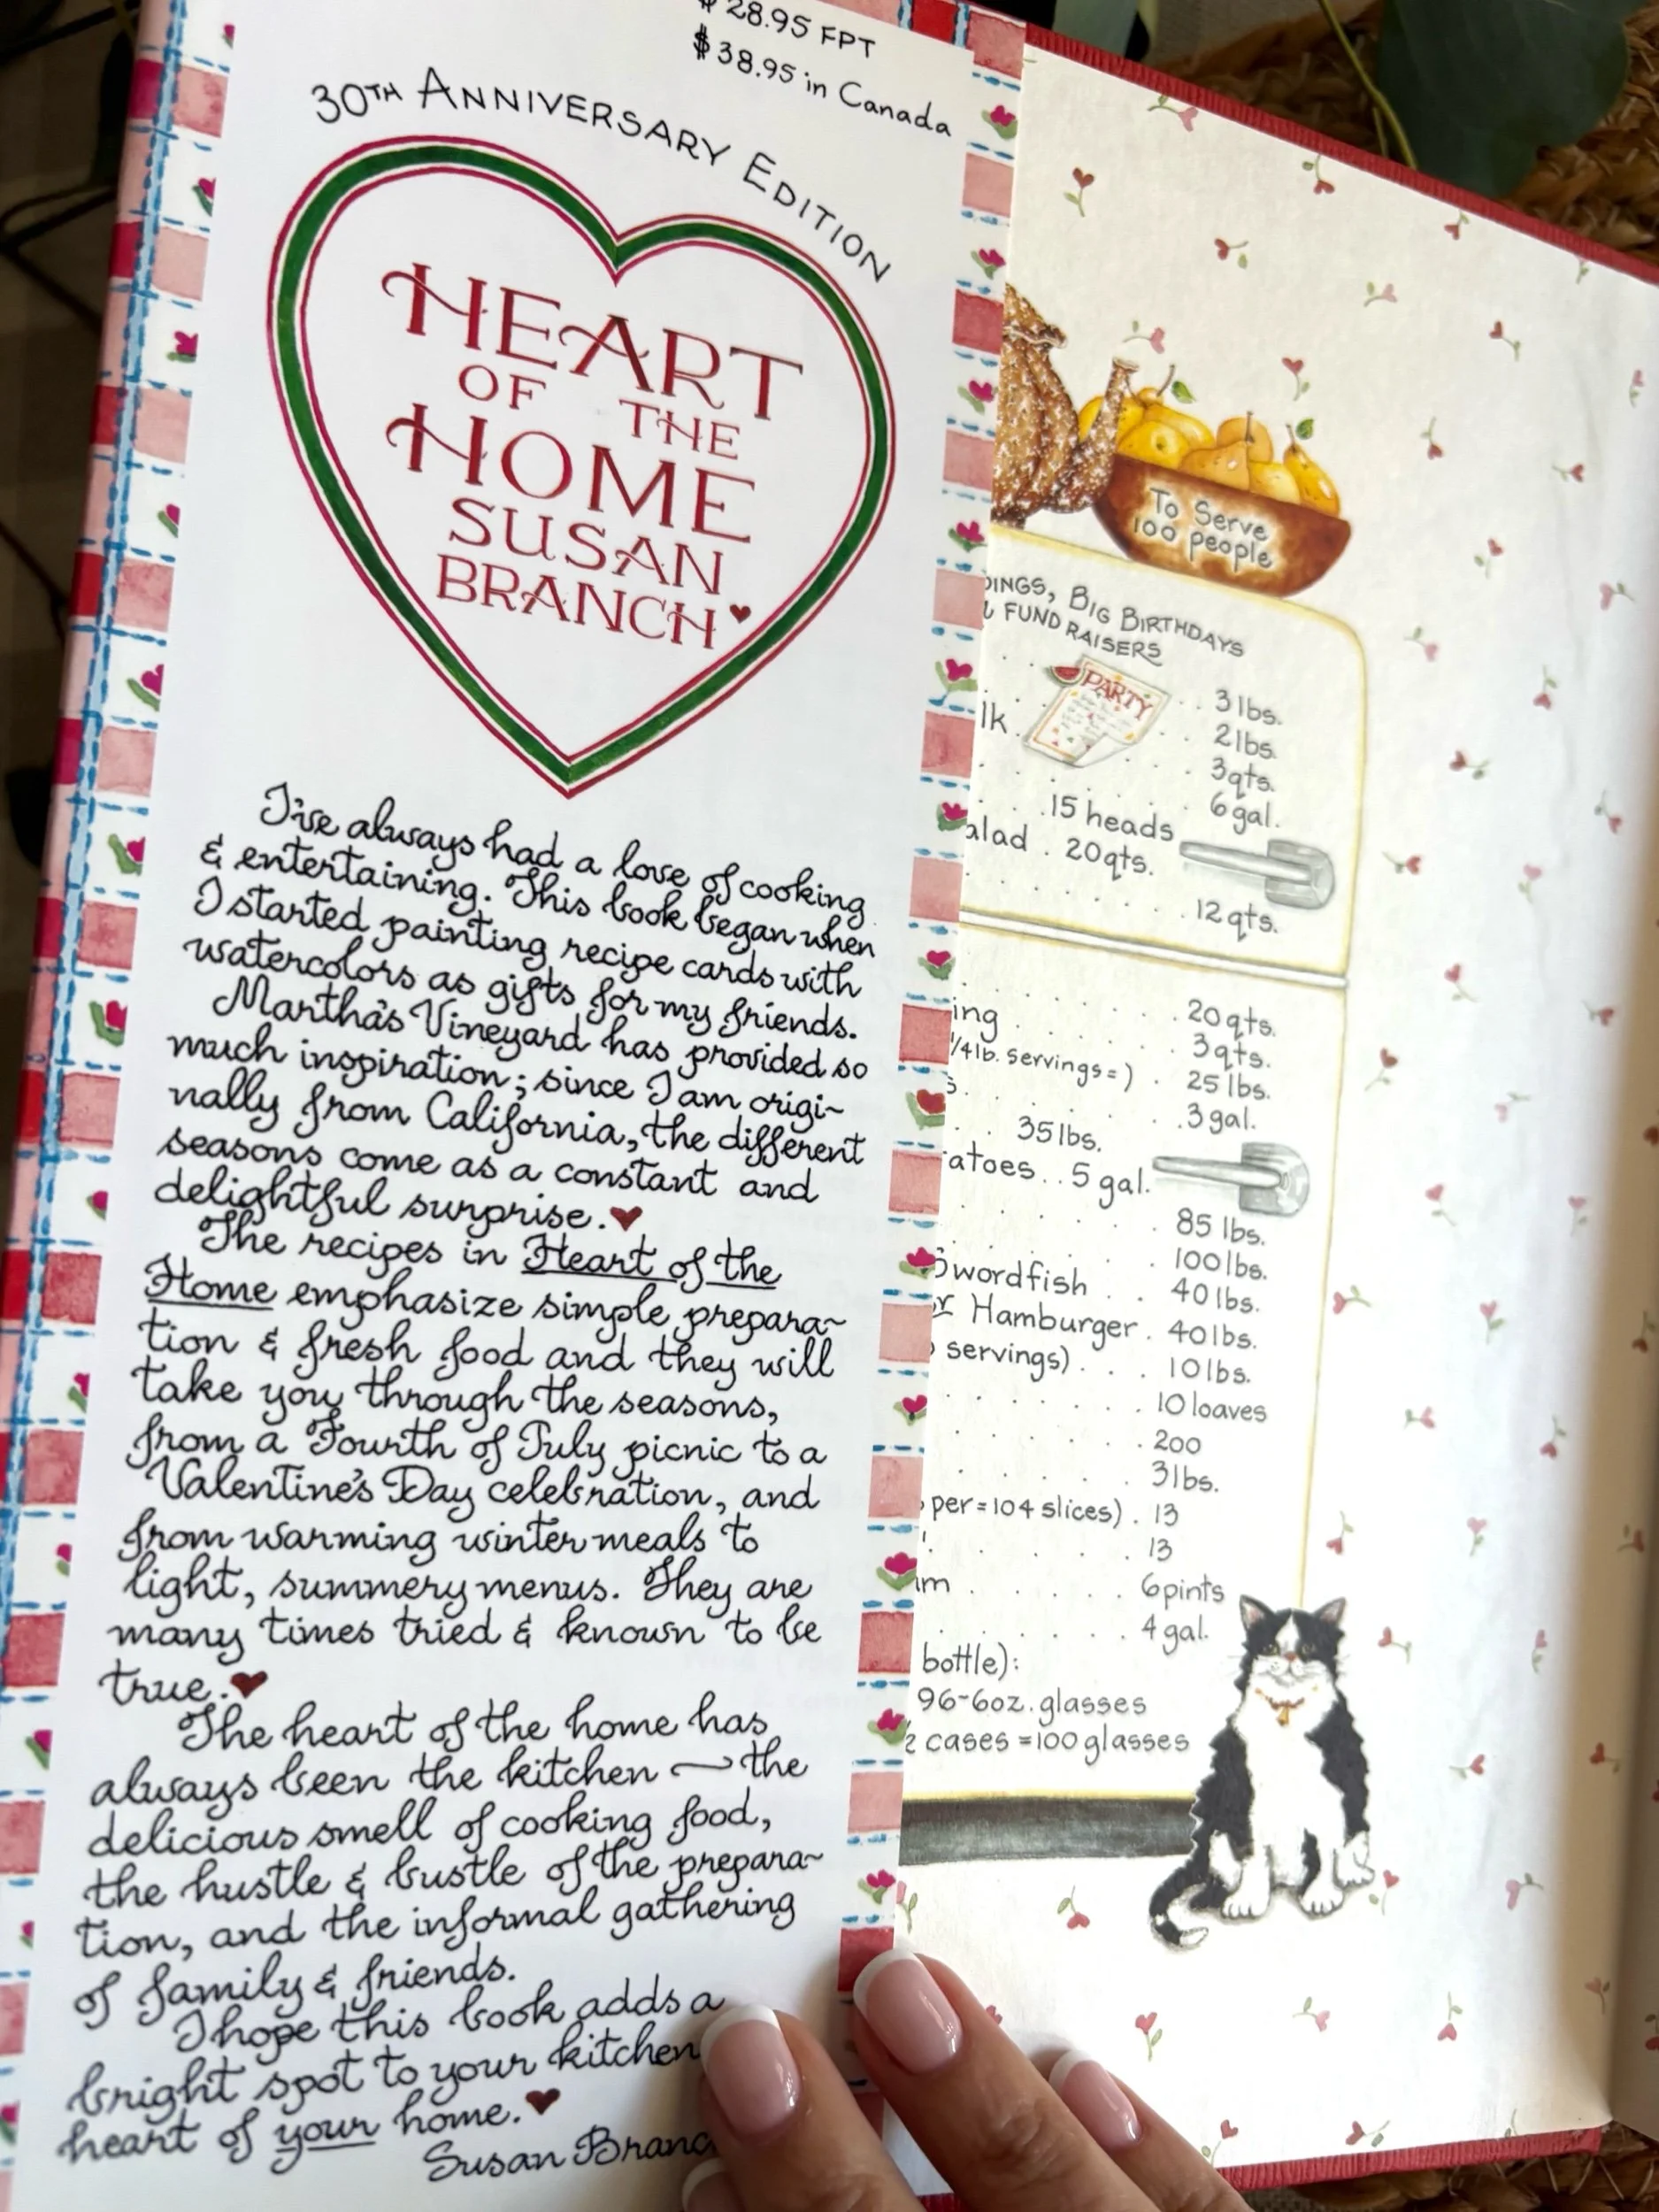 $28.95 FPT
$38.95 in Canada
30TH ANNIVERSARY EDITION
HEART
OF THE
HOME
SUSAN
BRANCH
I've always had a love of cooking
& entertaining. This book began when
I started painting recipe cards with
watercolors as gifts for my friends.
Martha's Vineyard has provided so
much inspiration; since I am origi~
nally from California, the different
seasons come as a constant and
delightful surprise.
The recipes in Heart of the
Home emphasize simple prepara~
tion & fresh food and they will
take you through the seasons,
from a Fourth of July picnic to a
Valentine's Day celebration, and
from warming winter meals to
light, summery menus. They are
many times tried & known to be
true.
The heart of the home has
always been the kitchen — the
delicious smell of cooking food,
the hustle & bustle of the prepara~
tion, and the informal gathering
of family & friends.
I hope this book adds a
bright spot to your kitchen
heart of your home.
Susan Branc
To Serve
100 people
DINGS, BIG BIRTHDAYS
FUND RAISERS
PARTY
. . 3 lbs.
lk . . . 2 lbs.
. . . 3 qts.
. . . 6 gal.
. 15 heads
alad . 20 qts.
. . . . . 12 qts.
. . . . . 20 qts.
ing . . . . . 3 qts.
1/4 lb. servings=) . 25 lbs.
s. . . . . . 3 gal.
. . 35 lbs.
atoes . . 5 gal.
. . . . . . 85 lbs.
. . . . . . 100 lbs.
Swordfish . . 40 lbs.
or Hamburger . 40 lbs.
servings) . . . 10 lbs.
. . . . . . 10 loaves
. . . . . . 200
. . . . . . 3 lbs.
per=104 slices) . 13
. . . . . 13
am . . . . . 6 pints
. . . . . 4 gal.
bottle):
96~6oz. glasses
1/2 cases =100 glasses